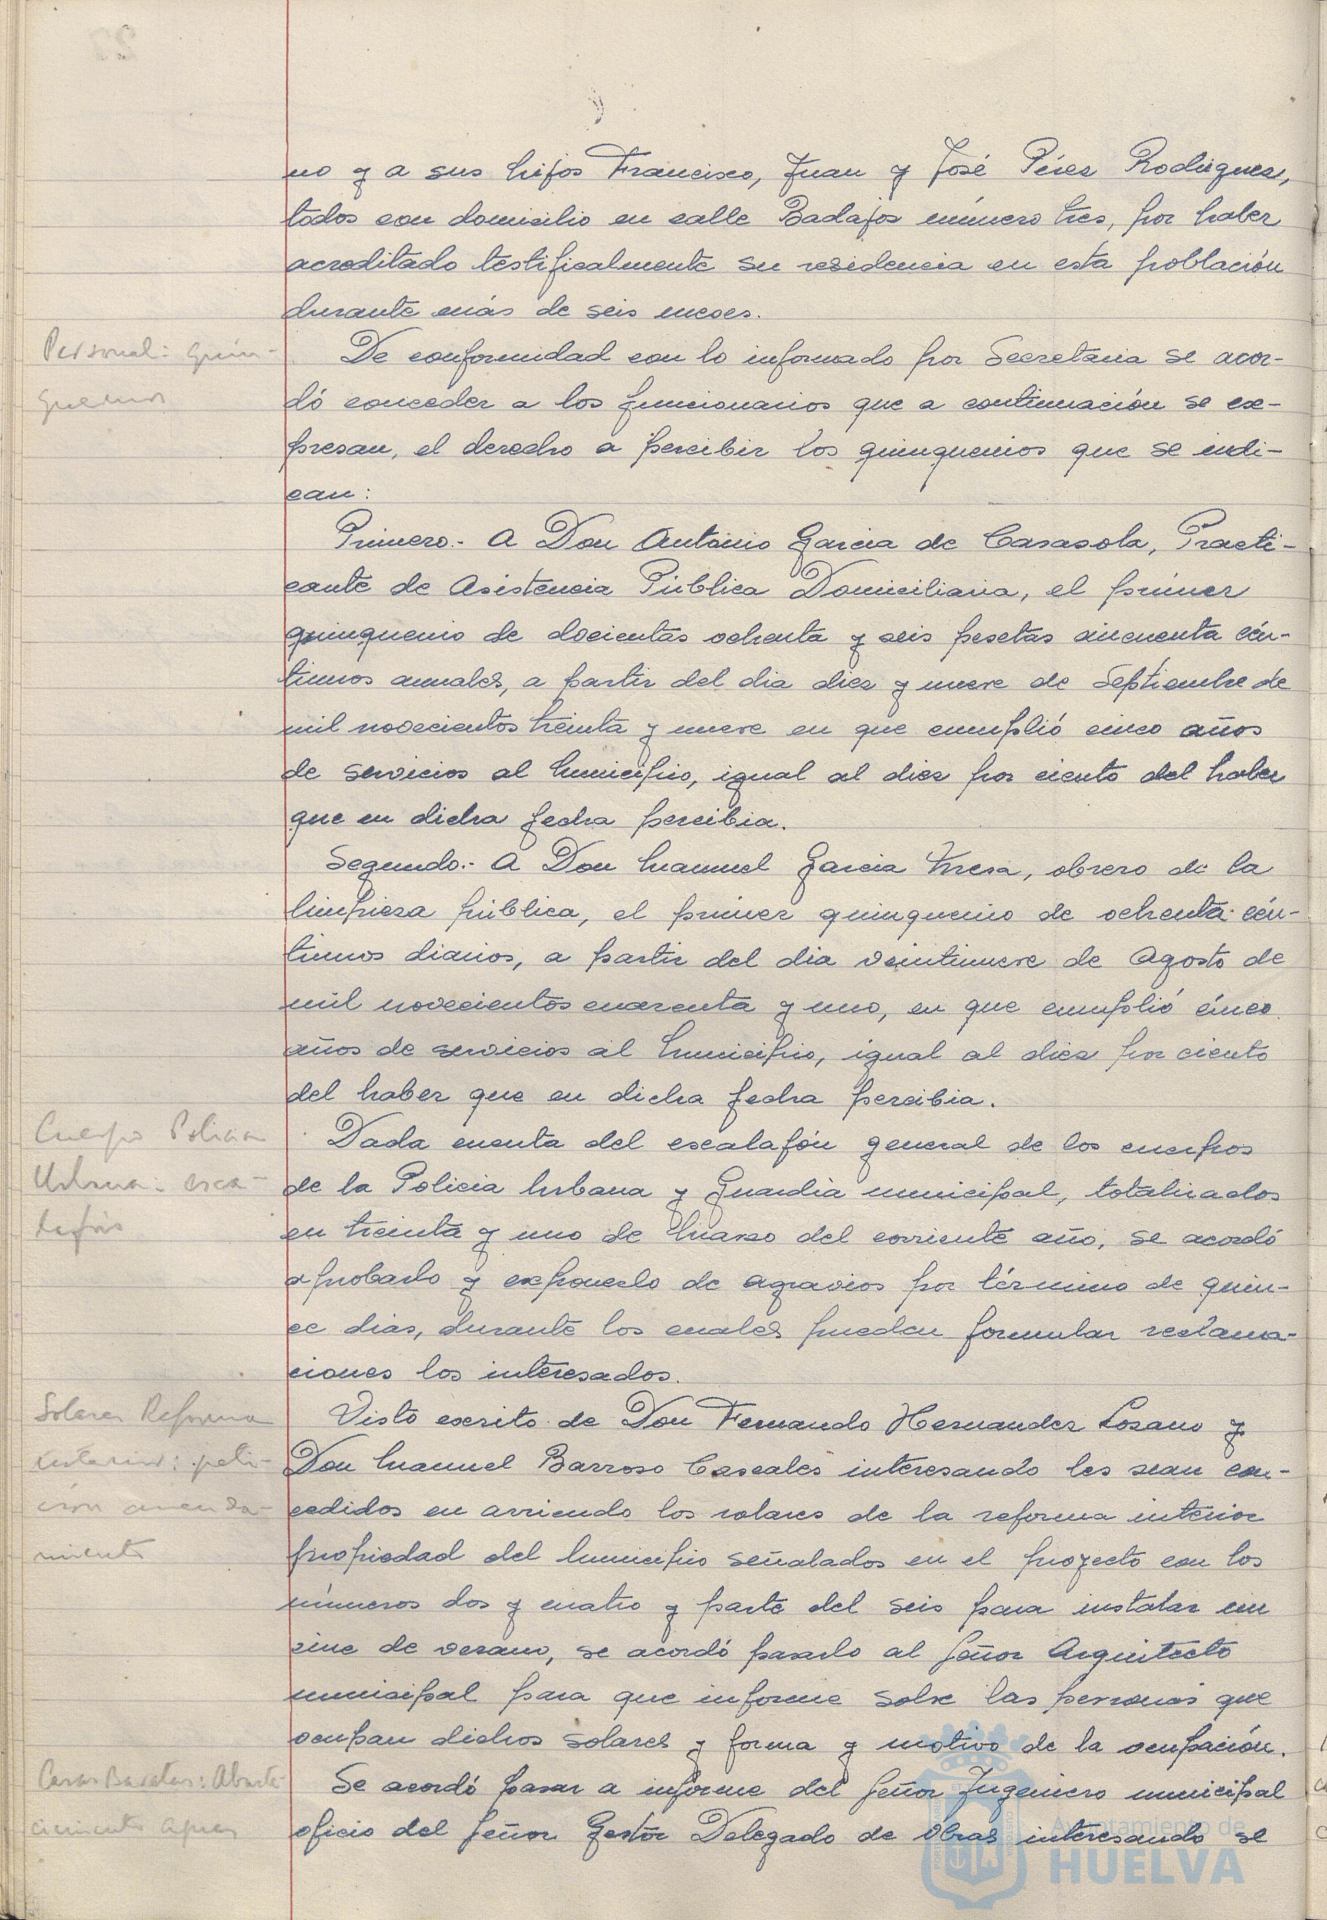 no y a sus hijos Francisco, Juan y José Pérez Rodriguez,
todos con domicilio en calle Badajoz número tres, por haber
acreditado testificalmente su residencia en esta población
durante más de seis meses.
Personal: Quin-
quenios
De conformidad con lo informado por Secretaria se acor-
dó conceder a los funcionarios que a continuación se ex-
presan, el derecho a percibir los quinquenios que se indi-
can:
Primero.- A Don Antonio Garcia de Casasola, Practi-
cante de Asistencia Pública Domiciliaria, el primer
quinquenio de docientas ochenta y seis pesetas cincuenta cén-
timos anuales, a partir del dia diez y nueve de Septiembre de
mil novecientos treinta y nueve en que cumplió cinco años
de servicios al Municipio, igual al diez por ciento del haber
que en dicha fecha percibia.
Segundo.- A Don Manuel Garcia, obrero de la
limpieza pública, el primer quinquenio de ochenta cén-
timos diarios, a partir del dia veintinueve de Agosto de
mil novecientos cuarenta y uno, en que cumplió cinco
años de servicios al Municipio, igual al diez por ciento
del haber que en dicha fecha percibia.
Cuerpo Policia
Urbana: esca-
lafón
Dada cuenta del escalafón general de los cuerpos
de la Policia Urbana y Guardia municipal, totalizados
en treinta y uno de Marzo del corriente año, se acordó
aprobarlo y exponerlo de agravios por término de quin-
ce dias, durante los cuales puedan formular reclama-
ciones los interesados.
Solares Reforma
interior: peti-
ción arrenda-
miento
Visto escrito de Don Fernando Hernandez Lozano y
Don Manuel Barroso Cascales interesando les sean con-
cedidos en arriendo los solares de la reforma interior
propiedad del Municipio señalados en el proyecto con los
números dos y cuatro y parte del seis para instalar un
cine de verano, se acordó pasarlo al Señor Arquitecto
municipal para que informe sobre las personas que
ocupan dichos solares y forma y motivo de la ocupación.
Casas Baratas: Abaste-
cimiento aguas
Se acordó pasar a informe del Señor Ingeniero municipal
oficio del Señor Gestor Delegado de Obras interesando se
Ayuntamiento de
HUELVA